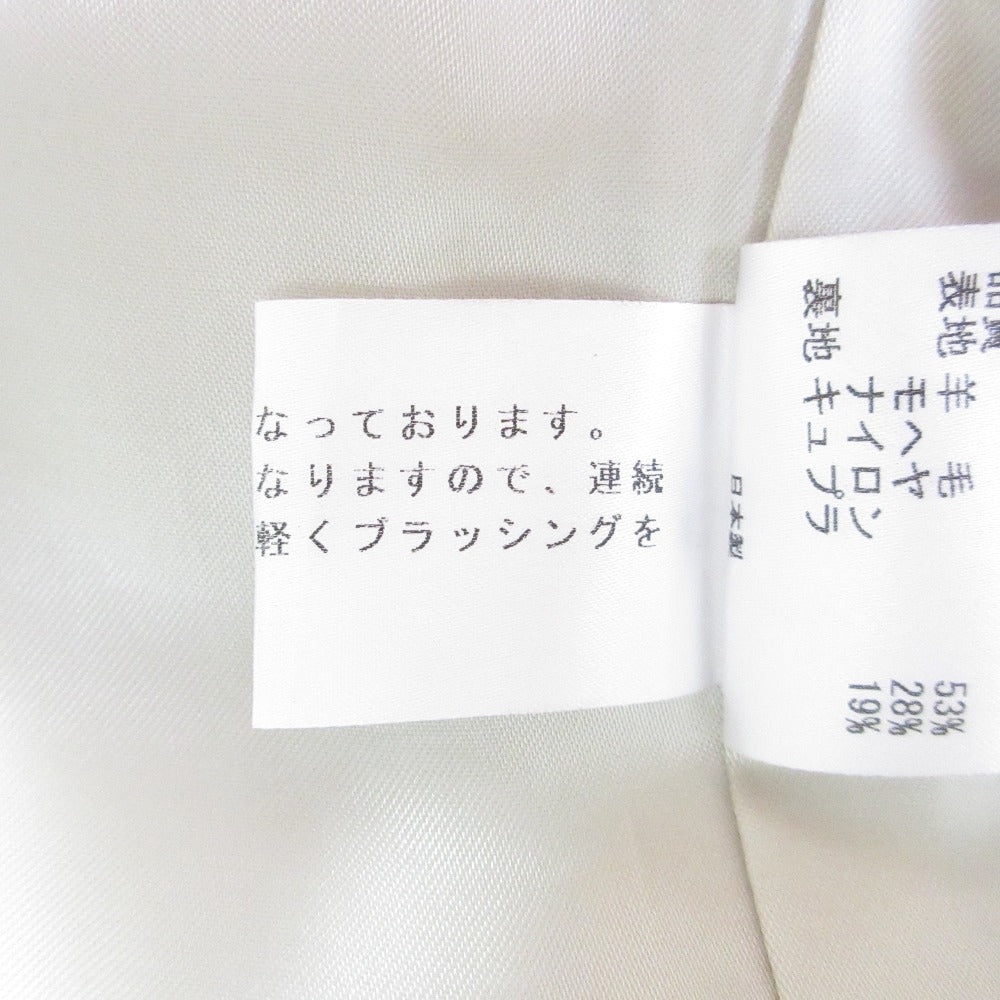 なっております。
なりますので、連続
軽くブラッシングを
日本製
表地 羊 毛 53%
モヘヤ 28%
ナイロン 19%
裏地 キュプラ